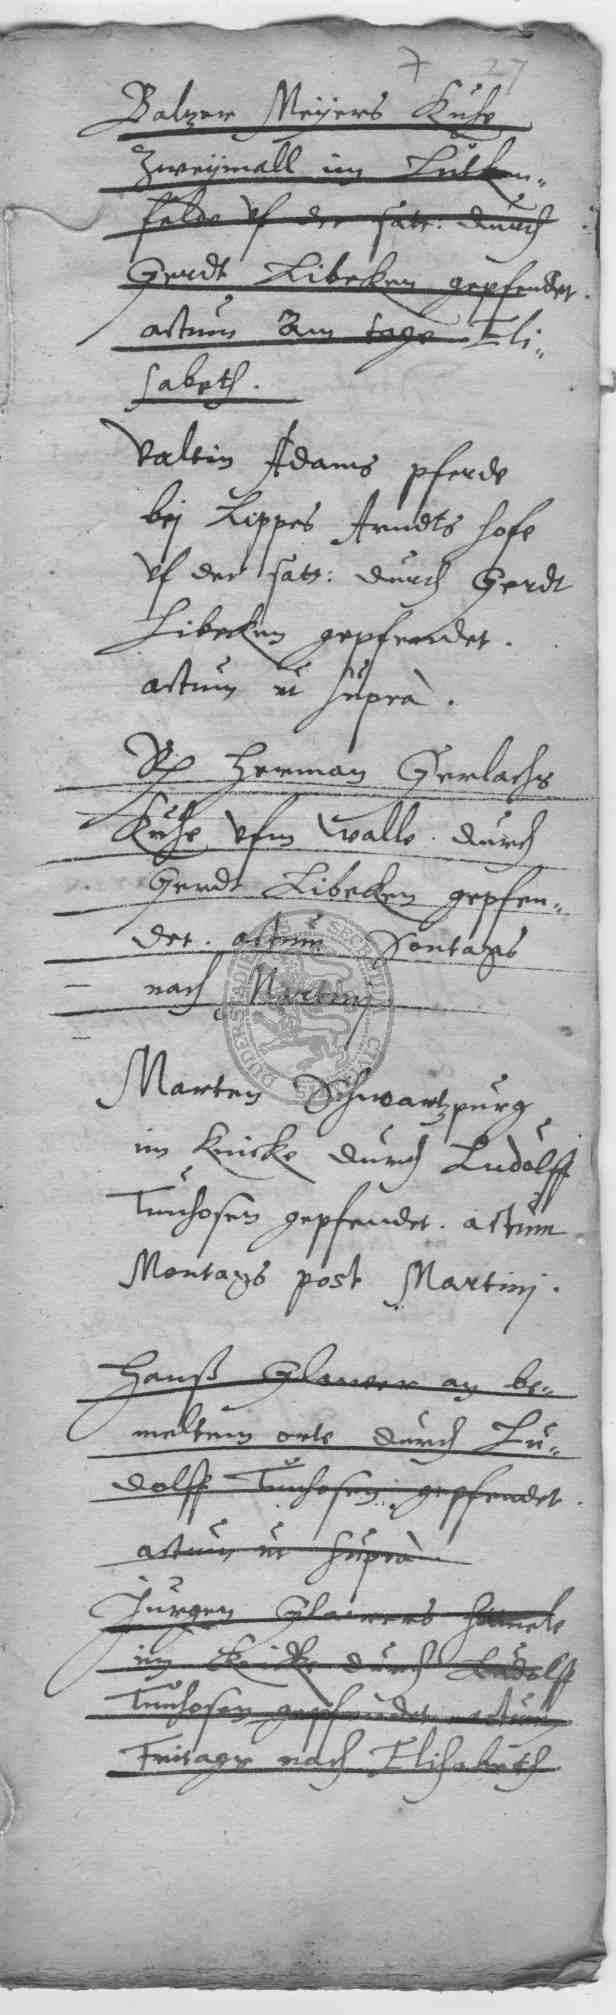 7 27
Balzer Meÿers Kuhe
Zweÿmall im Lülken-
felde vf der satt: durch
Gerdt Libeken gepfendet.
actum Am tage Eli-
sabeth.
Valtin Adams pferde
beÿ Lippes Arndts hofe
vf der satt: durch Gerdt
Libeken gepfendet.
actum ut suprà.
Herman Gerlachs
Kuhe vfm walle durch
Gerdt Libeken gepfen-
det. actum Sontags
nach Martinj
Marten Schwartzpurg
im knicke durch Ludolff
Tunhosen gepfendet. actum
Montags post Martinj.
Hanß Glawer an be-
meltem orte durch Lu-
dolff Tunhosen gepfendet.
actum ut suprà
Jurgen Glawers
im knicke durch Ludolff
Tunhosen gepfendet actum
Freitage nach Elisabeth